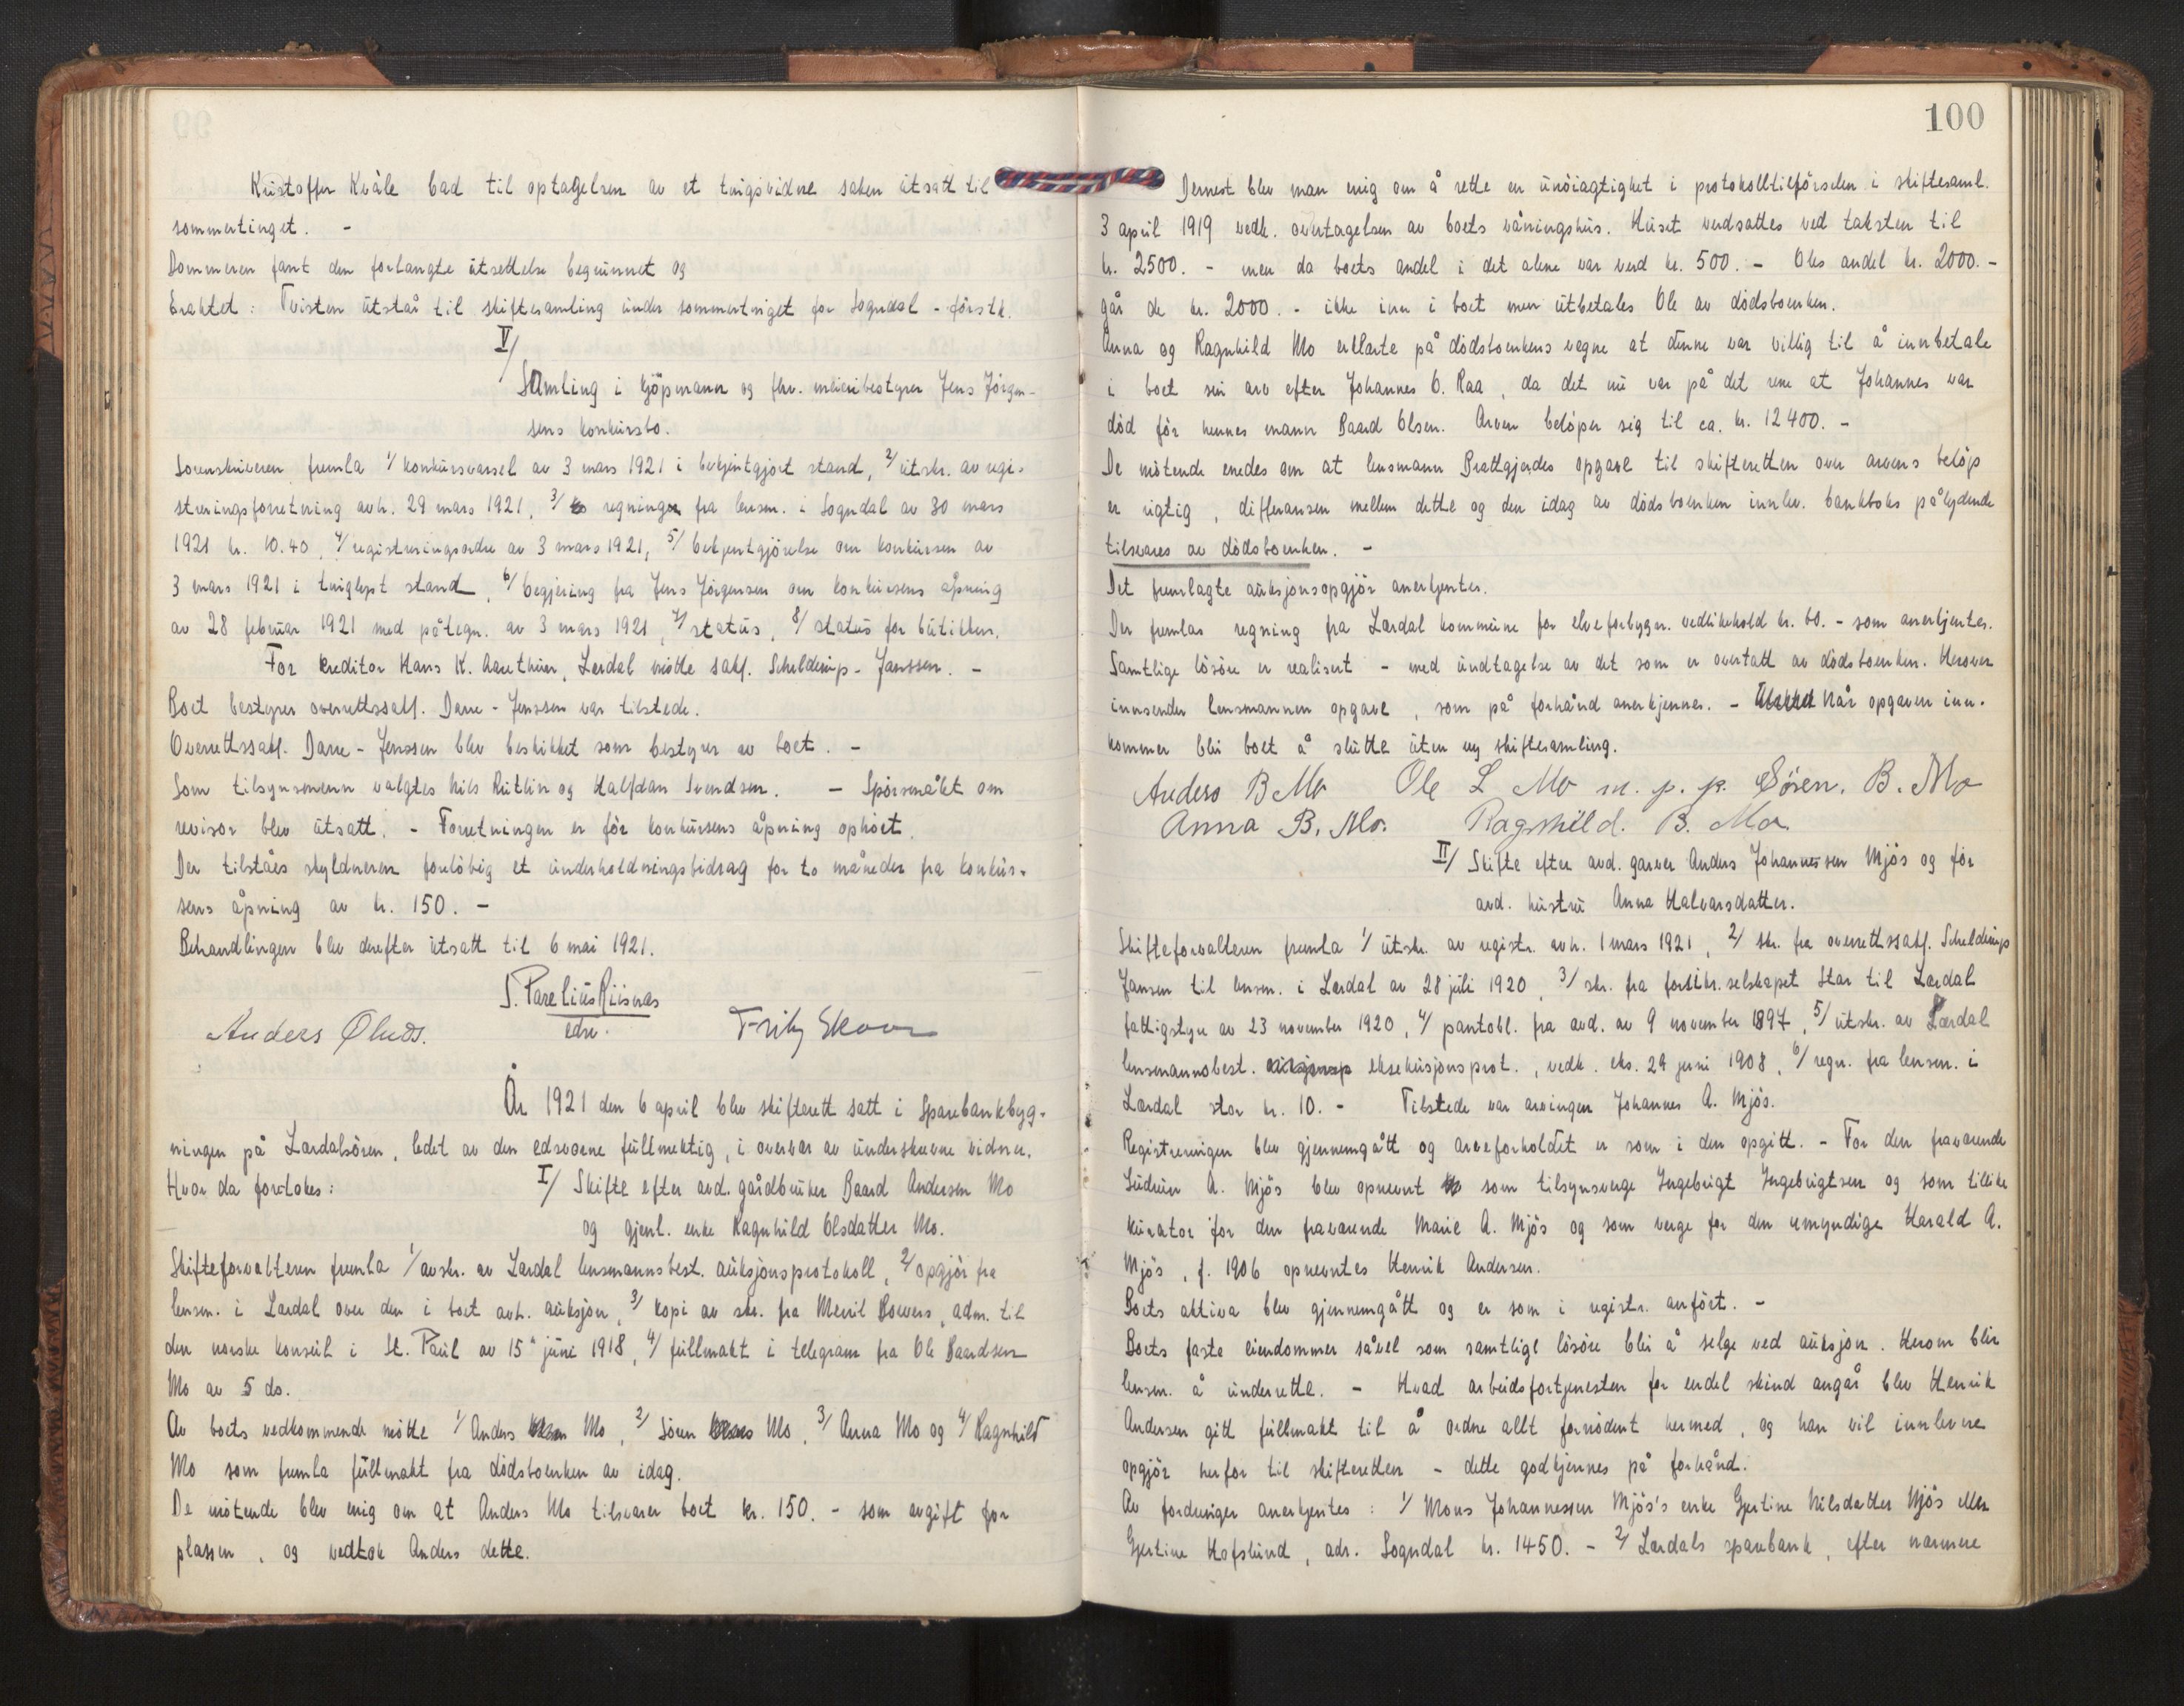 Kristoffer Kvåle bad til optagelsen av et tingsvidne saken utsatt til
sommertinget. -
Dommeren fant den forlangte utsettelse begrunnet og
Eraktet: Tvisten utstår til skiftesamling under sommertinget for Sogndal - førstk.
V/
Samling i kjøpmann og fhv. meieribestyrer Jens Jörgen-
sens konkursbo.
Sorenskriveren fremla 1/ konkursvarsel av 3 mars 1921 i bekjentgjort stand, 2/ utskr. av regi-
streringsforretning avh. 29 mars 1921, 3/ regninger fra lensm. i Sogndal av 30 mars
1921 kr. 10.40, 4/ registreringsordre av 3 mars 1921, 5/ bekjentgjörelse om konkursen av
3 mars 1921 i tinglyst stand, 6/ begjering fra Jens Jörgensen om konkursens åpning
av 28 februar 1921 med påtegn. av 3 mars 1921, 7/ status, 8/ status for butikken.
For kreditor Hans K. Aarethun, Lerdal mötte sakf. Schelderup-Janssen. -
Boet bestyrer overrettssakf. Darre-Jenssen var tilstede.
Overrettssakf. Darre-Jenssen blev beskikket som bestyrer av boet. -
Som tilsynsmenn valgtes Nils Rutlin og Halfdan Svendsen. - Spörsmålet om
revisor blev utsatt. - Forretningen er för konkursens åpning ophört.
Der tilståes skyldneren forelöbig et underholdningsbidrag for to måneder fra konkur-
sens åpning av kr. 150. -
Behandlingen blev derefter utsatt til 6 mai 1921.
S. Parelius Riisnæs
edsv.
Anders Öluds. Fritz Skoor
År 1921 den 6 april blev skifterett satt i Sparebankbyg-
ningen på Lærdalsören, ledet av den edsvorne fullmektig, i overvær av underskrevne vidner.
Hvor da foretokes: I/ Skifte efter avd. gårdbruker Baard Andersen Mo
og gjenl. enke Ragnhild Olsdatter Mo.
Skifteforvalteren fremla 1/ avskr. av Lærdal lensmannsbest. auksjonsprotokoll, 2/ opgjör fra
lensm. i Lærdal over den i boet avh. auksjon, 3/ kopi av skr. fra Meril Bowers, adm. til
den norske konsul i St. Paul av 15 juni 1918, 4/ fullmakt i telegram fra Ole Baardsen
Mo av 5 ds.
Av boets vedkommende mötte 1/ Anders Mo, 2/ Sören Mo, 3/ Anna Mo og 4/ Ragnhild
Mo som fremla fullmakt fra dödsboenken av idag.
De mötende blev enig om at Anders Mo tilsvarer boet kr. 150. - som avgift for
plassen, og vedtok Anders dette.
100
Dernest blev man enig om å rette en unöiagtighet i protokolltilförselen i skiftesaml.
3 april 1919 vedk. overtagelsen av boets våningshus. Huset verdsattes ved taksten til
kr. 2500. - men da boets andel i det alene var verd kr. 500. - Oles andel kr. 2000. -
går de kr. 2000. - ikke inn i boet men utbetales Ole av dödsboenken.
Anna og Ragnhild Mo erklærte på dödsboenkens vegne at denne var villig til å innbetale
i boet sin arv efter Johannes O. Raa, da det nu var på det rene at Johannes var
död för hennes mann Baard Olsen. Arven belöper sig til ca. kr. 12400. -
De mötende enedes om at lensmann Brattgjerdes opgave til skifteretten over arvens belöp
er rigtig, differansen mellem dette og den idag av dödsboenken innlev. bankboks pålydende
tilsvares av dödsboenken. -
Det fremlagte auksjonsopgjör anerkjentes.
Der fremlas regning fra Lærdal kommune for elveforbygn. vedlikehold kr. 60. - som anerkjentes.
Samtlige lösöre er realisert - med undtagelse av det som er overtatt av dödsboenken. Herover
innsender lensmannen opgave, som på forhånd anerkjennes. - Når opgaven inn-
kommer blir boet å slutte uten ny skiftesamling.
Anders B Mo Ole L Mo m. p. p. Sören. B. Mo
Anna B. Mo. Ragnhild. B. Mo
II/ Skifte efter avd. garver Anders Johannessen Mjös og för
avd. hustru Anna Halvarsdatter.
Skifteforvalteren fremla 1/ utskr. av registr. avh. 1 mars 1921, 2/ skr. fra overrettssakf. Schelderup
Jansen til lensm. i Lærdal av 28 juli 1920, 3/ skr. fra forsikr.selskapet Star til Lærdal
fattigstyre av 23 november 1920, 4/ pantobl. fra avd. av 9 november 1897, 5/ utskr. av Lærdal
lensmannsbest. eksekusjonsprot., vedk. eks. 29 juni 1908, 6/ regn. fra lensm. i
Lærdal stor kr. 10. - Tilstede var arvingen Johannes A. Mjös.
Registreringen blev gjennemgått og arveforholdet er som i den opgitt. - For den fraværende
Gudrun A. Mjös blev opnevnt som tilsynsverge Ingebrigt Ingebrigtsen og som tillike
kurator for den fraværende Marie A. Mjös og som verge for den umyndige Harald A.
Mjös, f. 1906 opnevntes Henrik Andersen.
Boets aktiva blev gjennemgått og er som i registr. anfört. -
Boets faste eiendommer såvel som samtlige lösöre blir å selge ved auksjon. Herom blir
lensm. å underrette. - Hvad arbeidsfortjenesten for endel skind angår blev Henrik
Andersen gitt fullmakt til å ordne allt fornödent hermed, og han vil innlevere
opgjör herfor til skifteretten - dette godkjennes på forhånd.
Av fordringer anerkjentes: 1/ Mons Johannessen Mjös's enke Gjertine Nilsdatter Mjös eller
Gjertine Hofslund, adr. Sogndal kr. 1450. - 2/ Lærdals sparebank, efter nærmere